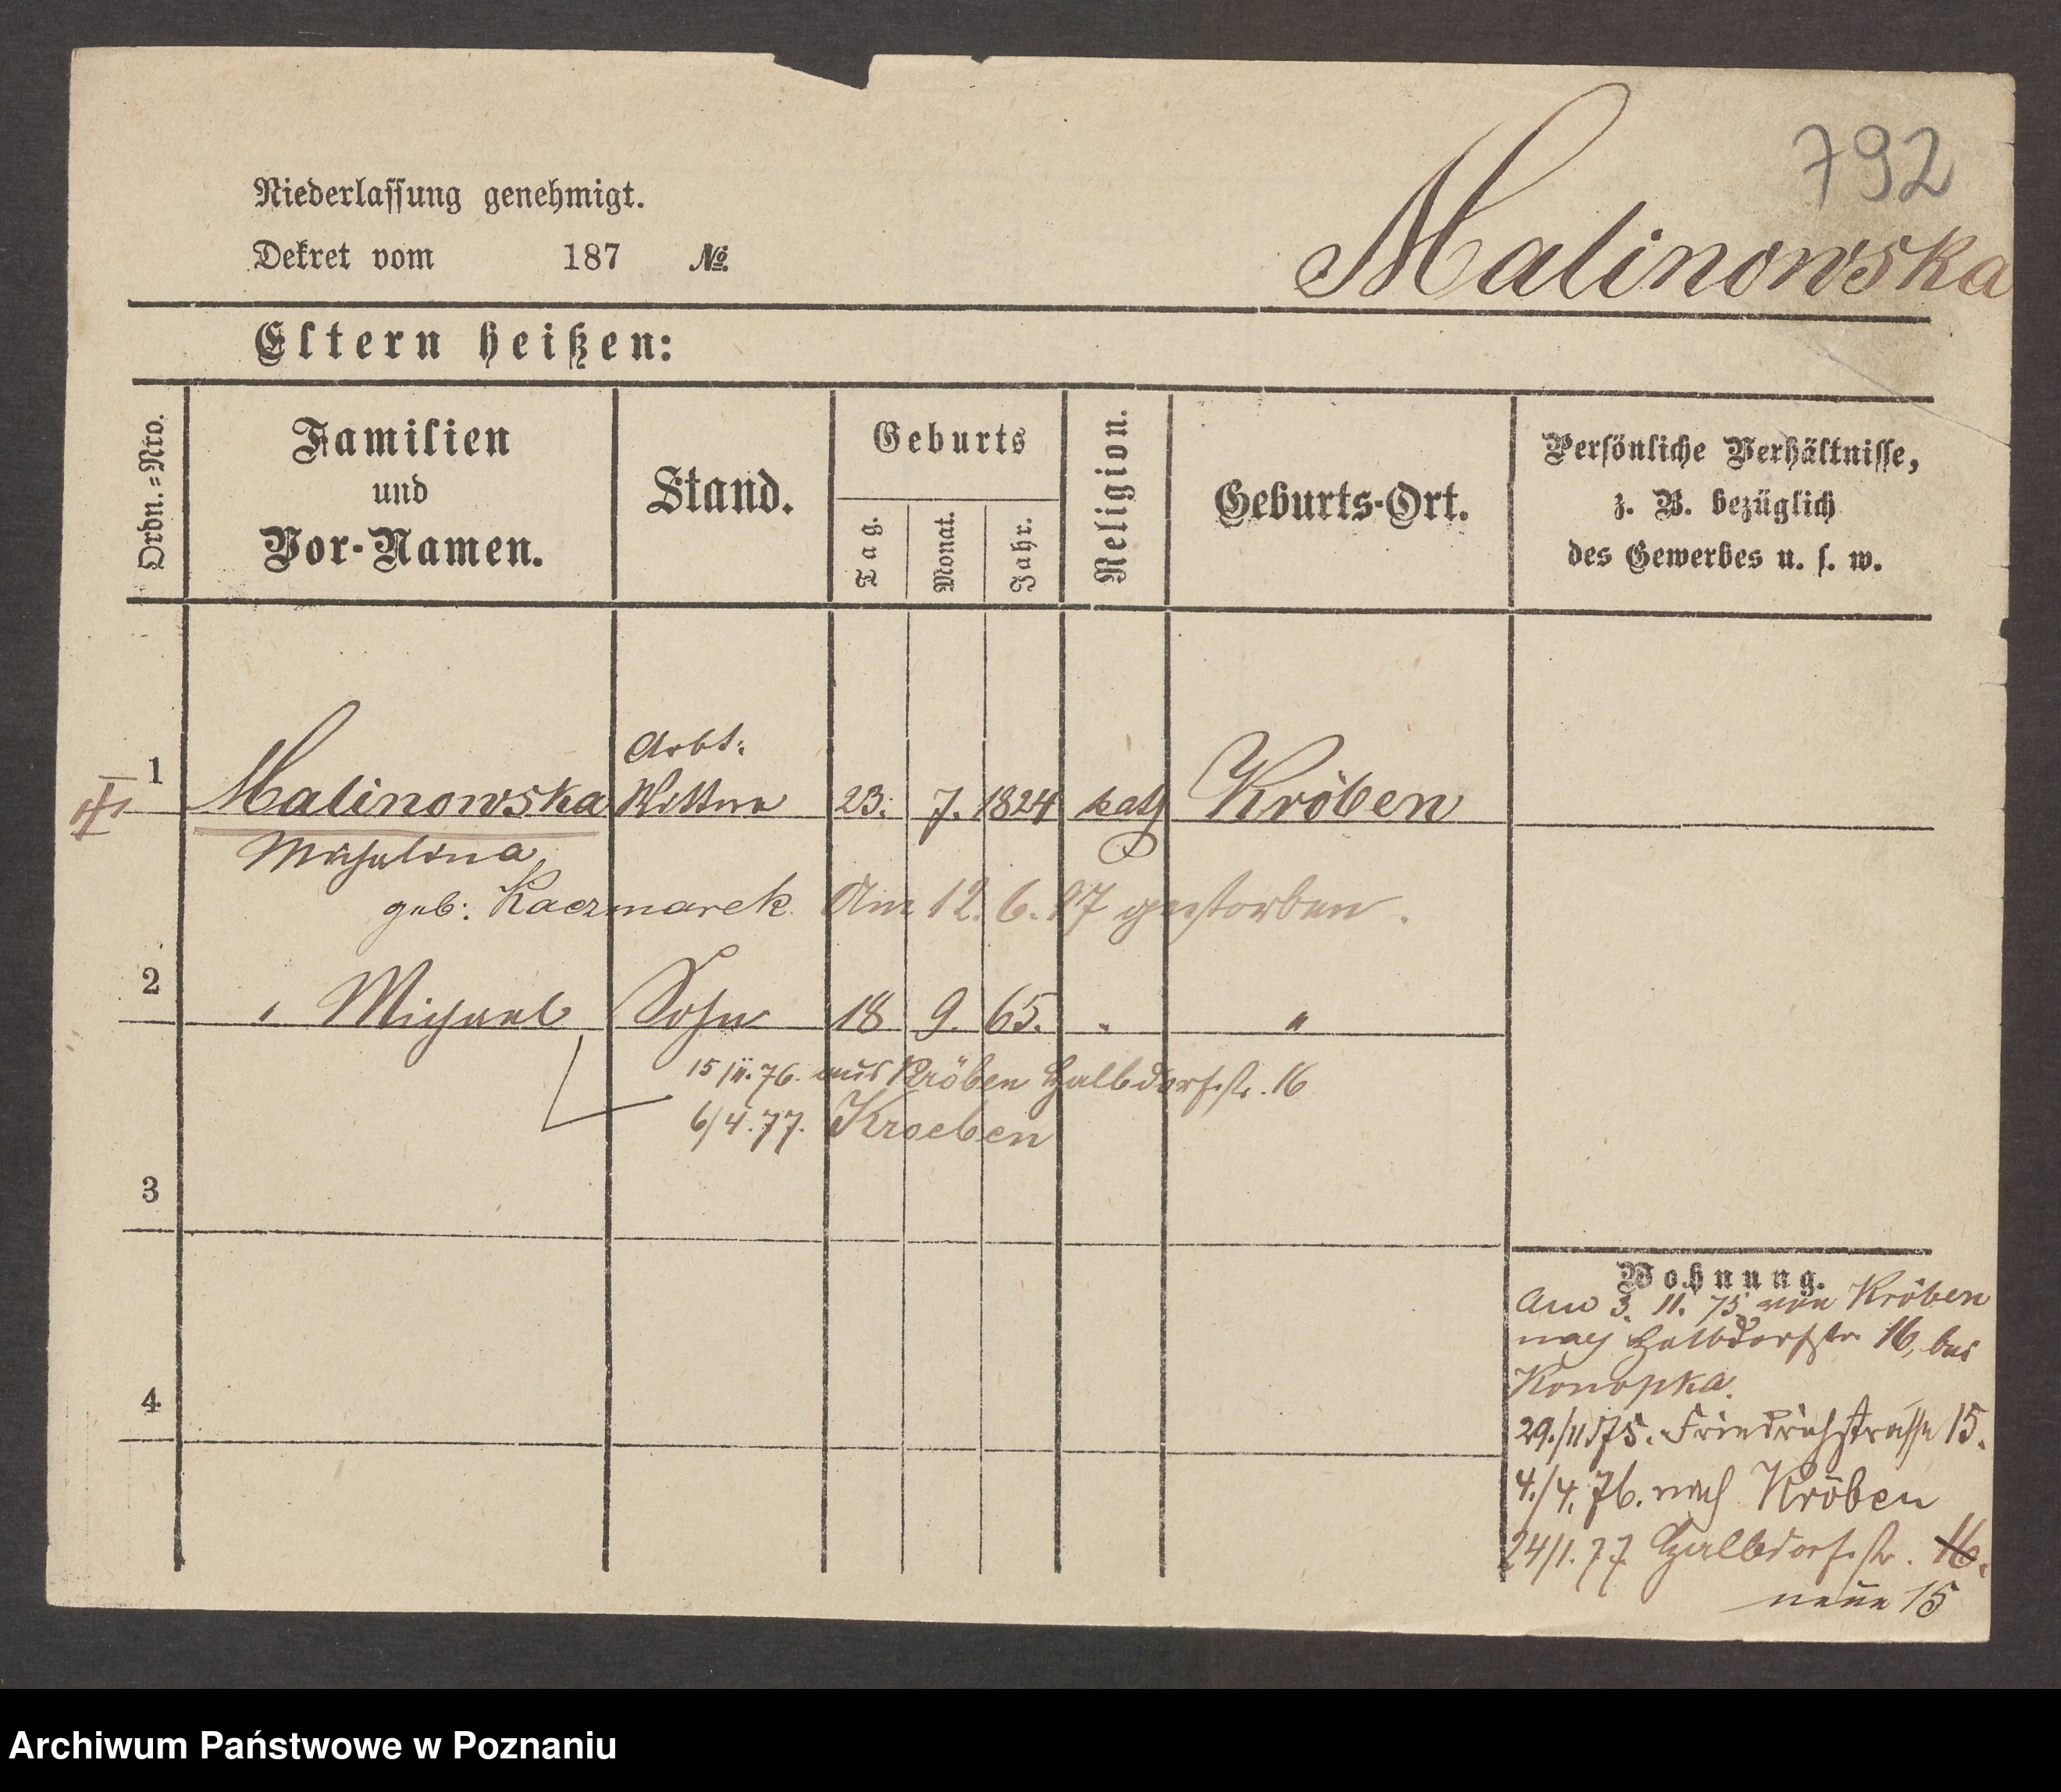 792
Malinowska
Niederlassung genehmigt.
Dekret vom 187 №
Eltern heißen:
Ordn.=Nro.
Familien
und
Vor-Namen.
Stand.
Geburts
Tag.
Monat.
Jahr.
Religion.
Geburts-Ort.
Persönliche Verhältnisse,
z. B. bezüglich
des Gewerbes u. s. w.
Arbt:
1 Malinowska Wittwe 23. 7. 1824 kath Kröben
Michalina
geb: Kaczmarek Am 12. 6. 77 gestorben.
2 " Michael Sohn 18 9. 65. " "
15/II.76. aus Kröben Halbdorfstr. 16
6/4.77. Kroeben
3
4
Wohnung.
Am 3. 11. 75 von Kröben
nach Halbdorfstr 16, bei
Konopka.
29./11.75. Friedrichstrasse 15.
4./4. 76. nach Kröben
24/1.77 Halbdorfstr. 16.
neue 15
Archiwum Państwowe w Poznaniu